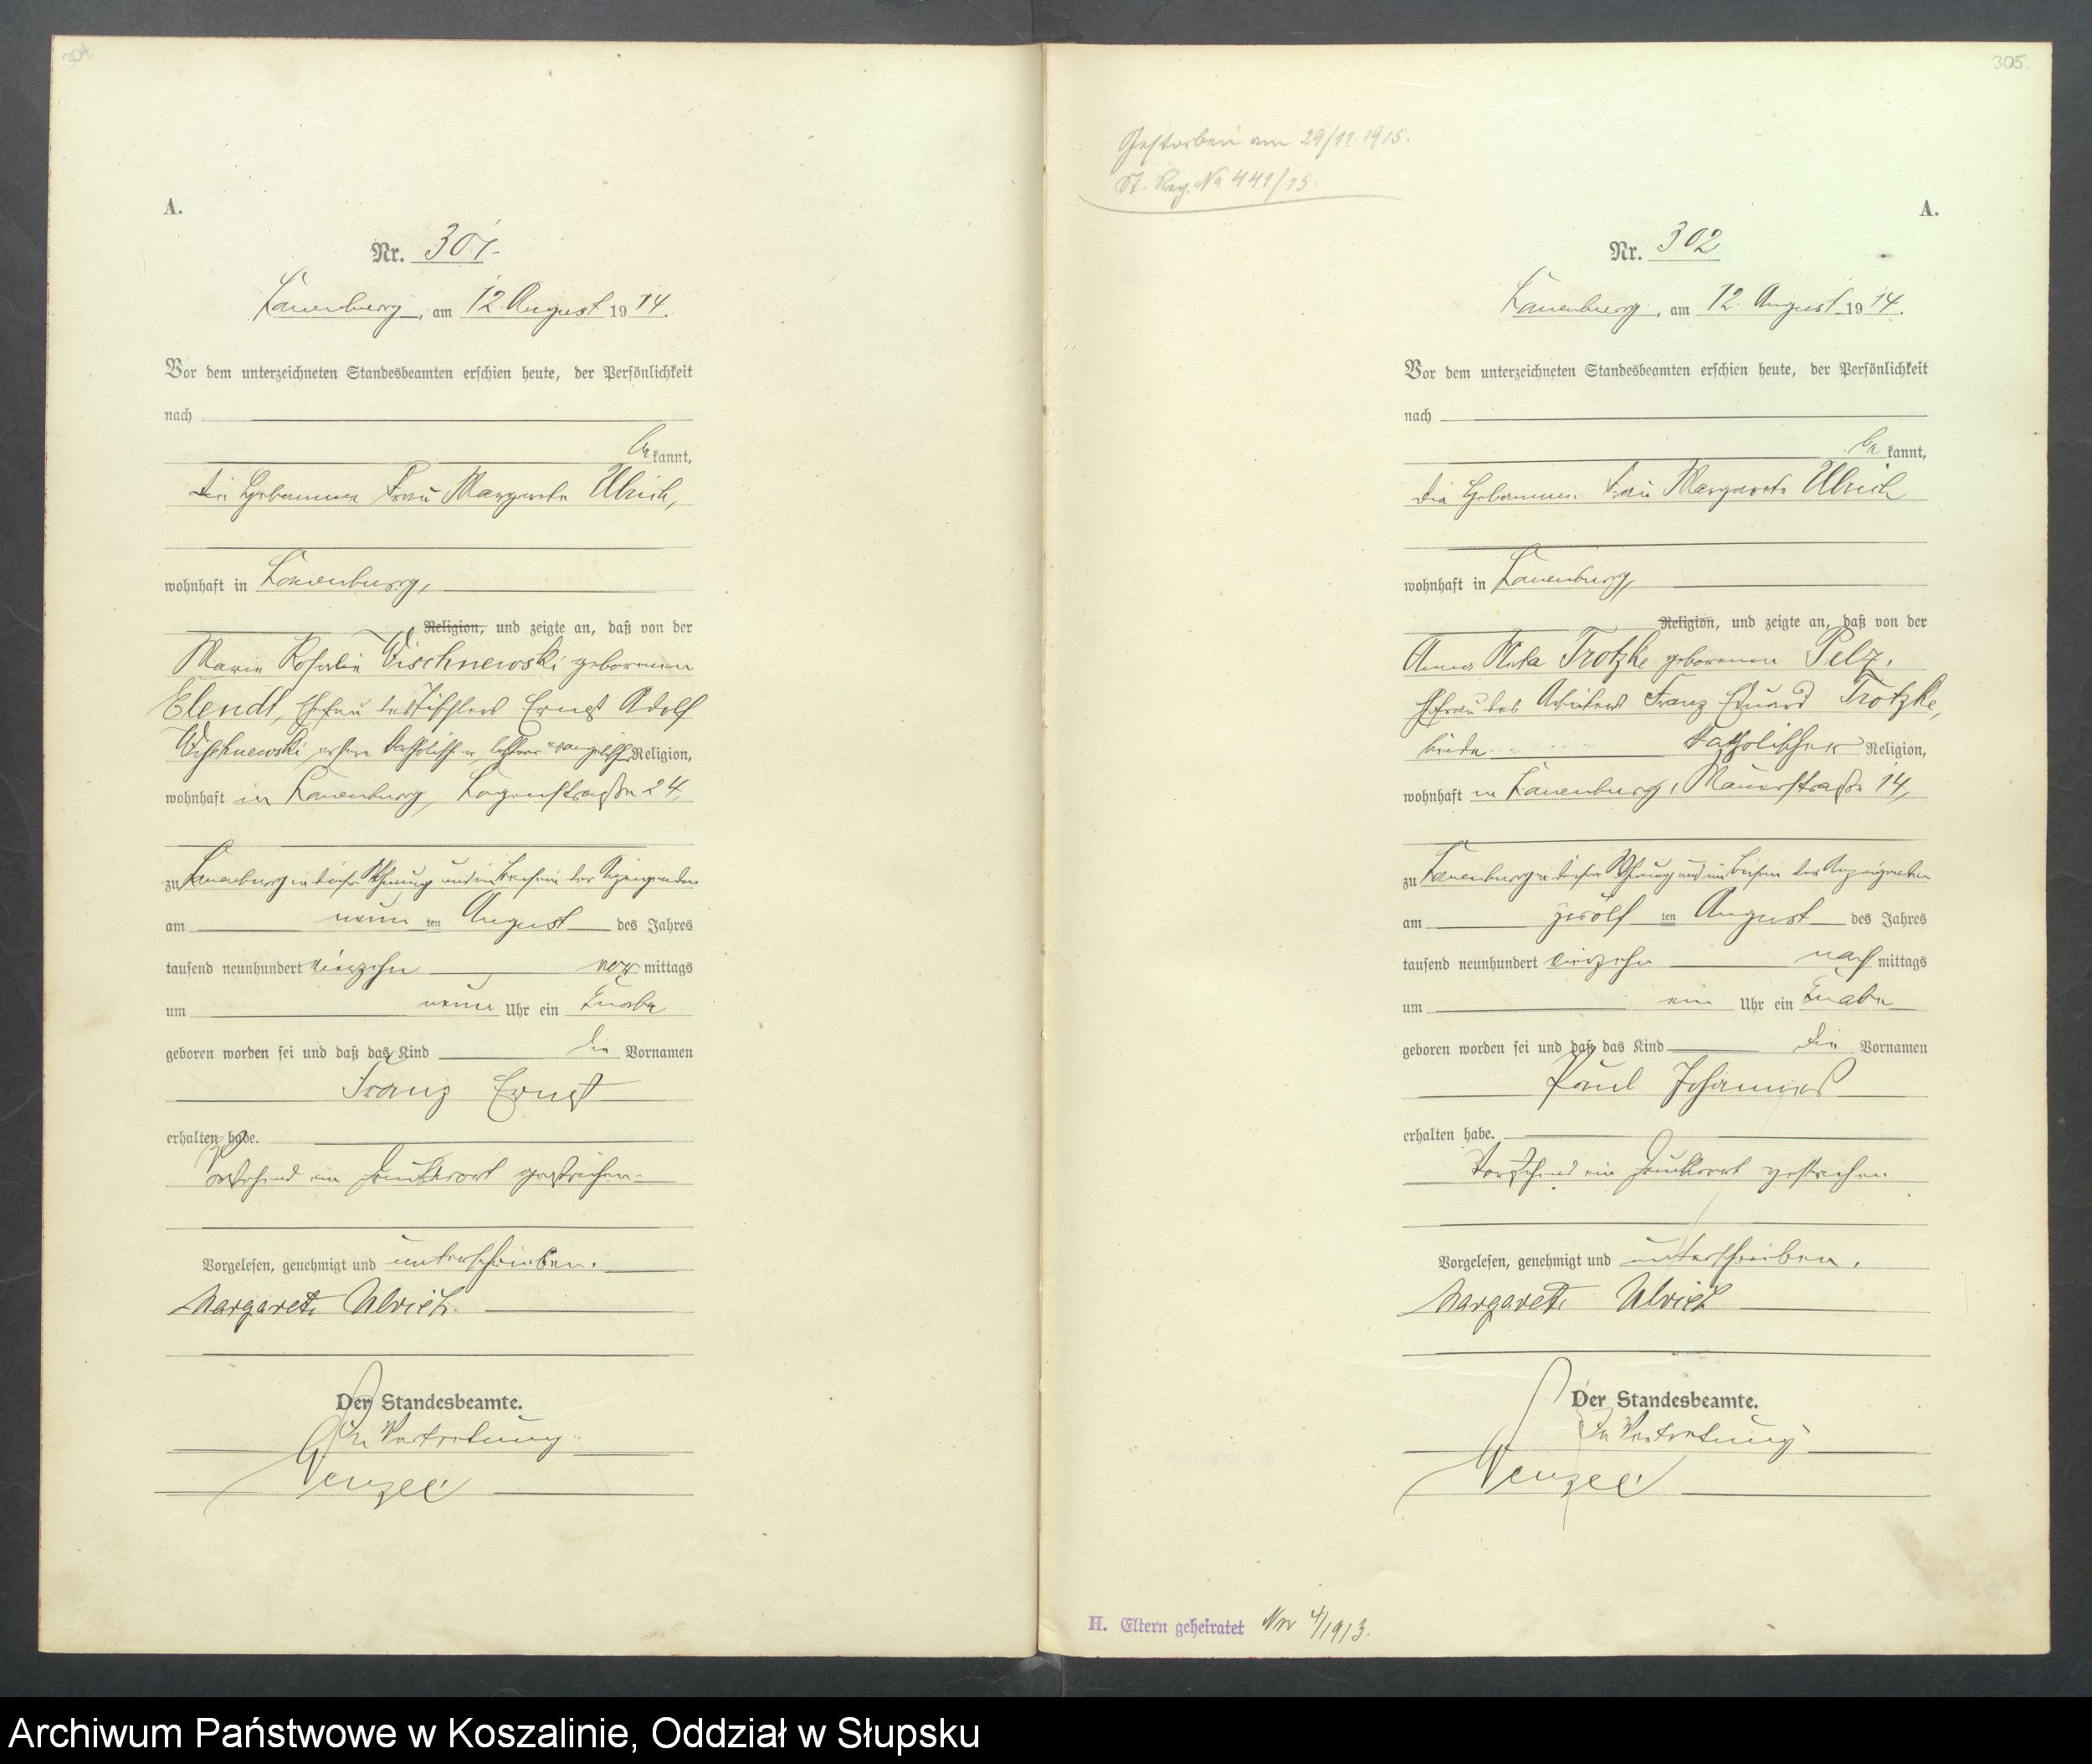 304.
A.
Nr. 301.
Lauenburg, am 12. August 1914.
Vor dem unterzeichneten Standesbeamten erschien heute, der Persönlichkeit
nach
bekannt,
die Hebamme Frau Margarete Ulrich,
wohnhaft in Lauenburg,
Religion, und zeigte an, daß von der
Marie Rosalie Wischnewski geborenen
Elendt, Ehefrau des Tischlers Ernst Adolf
Wischnewski, erstere katholischer, letzterer evangelischer Religion,
wohnhaft in Lauenburg, Logenstraße 24,
zu Lauenburg in dieser Wohnung und im Beisein der Anzeigenden
am neunten August des Jahres
tausend neunhundert vierzehn vormittags
um neun Uhr ein Knabe
geboren worden sei und daß das Kind die Vornamen
Franz Ernst
erhalten habe.
Vorstehend ein Druckwort gestrichen.
Vorgelesen, genehmigt und unterschrieben.
Margarete Ulrich.
Der Standesbeamte.
In Vertretung.
Wenzel
305.
Gestorben am 29/11.1915.
St. Reg. No 441/15.
A.
Nr. 302
Lauenburg, am 12. August 1914.
Vor dem unterzeichneten Standesbeamten erschien heute, der Persönlichkeit
nach
bekannt,
die Hebamme Frau Margarete Ulrich
wohnhaft in Lauenburg,
Religion, und zeigte an, daß von der
Anna Trotzke geborenen Pelz,
Ehefrau des Arbeiters Franz Eduard Trotzke,
beide katholischer Religion,
wohnhaft in Lauenburg, Mauerstraße 14,
zu Lauenburg in dieser Wohnung und im Beisein der Anzeigenden
am zwölften August des Jahres
tausend neunhundert vierzehn nachmittags
um ein Uhr ein Knabe
geboren worden sei und daß das Kind die Vornamen
Paul Johannes
erhalten habe.
Vorstehend ein Druckwort gestrichen.
Vorgelesen, genehmigt und unterschrieben.
Margarete Ulrich
Der Standesbeamte.
In Vertretung
Wenzel
H. Eltern geheiratet Nr 4/1913.
Archiwum Państwowe w Koszalinie, Oddział w Słupsku